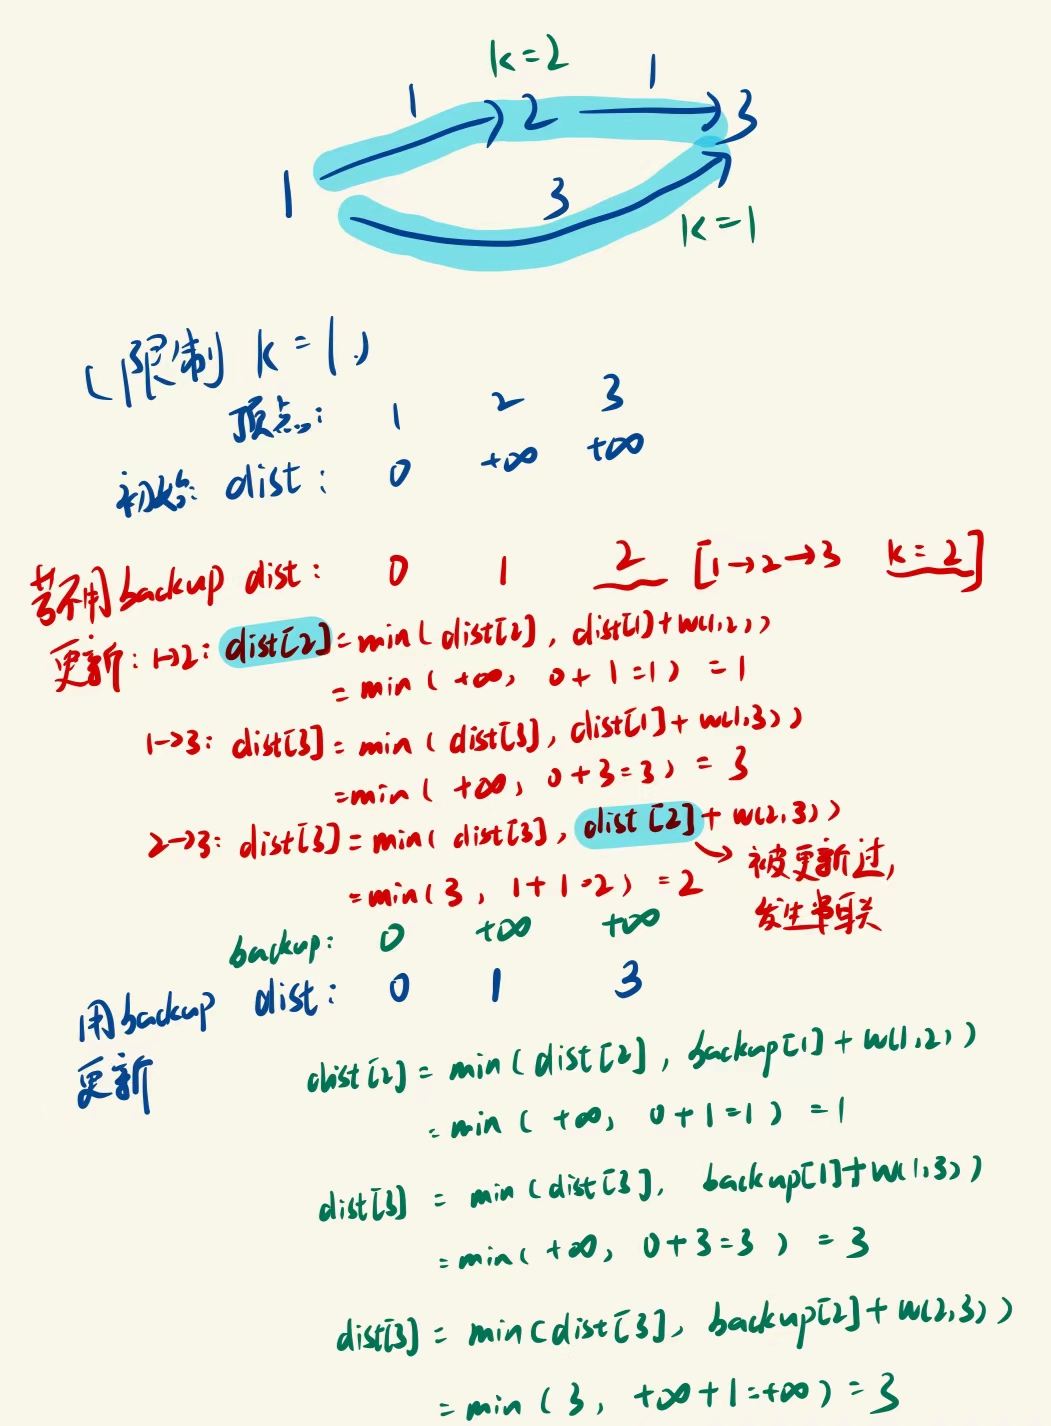 k=2
1 1
1 2 3
3
k=1
(限制 k=1)
顶点: 1 2 3
初始: dist: 0 +∞ +∞
若不用backup dist: 0 1 2 [1→2→3 k=2]
更新: 1→2: dist[2]=min(dist[2], dist[1]+w(1,2))
=min(+∞, 0+1=1) =1
1→3: dist[3]=min(dist[3], dist[1]+w(1,3))
=min(+∞, 0+3=3) =3
2→3: dist[3]=min(dist[3], dist[2]+w(2,3))
→被更新过,
=min(3, 1+1=2) =2
发生串联
backup: 0 +∞ +∞
用backup dist: 0 1 3
更新
dist[2]=min(dist[2], backup[1]+w(1,2))
=min(+∞, 0+1=1) =1
dist[3] = min(dist[3], backup[1]+w(1,3))
=min(+∞, 0+3=3) =3
dist[3] = min(dist[3], backup[2]+w(2,3))
=min(3, +∞+1=+∞) =3